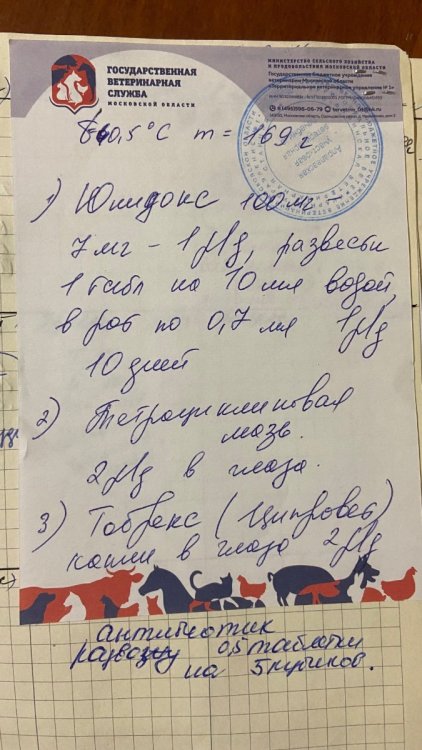 ГОСУДАРСТВЕННАЯ
ВЕТЕРИНАРНАЯ
СЛУЖБА
МОСКОВСКОЙ ОБЛАСТИ
МИНИСТЕРСТВО СЕЛЬСКОГО ХОЗЯЙСТВА
И ПРОДОВОЛЬСТВИЯ МОСКОВСКОЙ ОБЛАСТИ
Государственное бюджетное учреждение
ветеринарии Московской области
«Территориальное ветеринарное управление № 1»
40,5°C m = 169 г
1) Юнидокс 100 мг –
7 мг – 1 р/д, развести
1 табл на 10 мл водой,
в рот по 0,7 мл 1 р/д
10 дней
2) Тетрациклиновая
мазь.
2 р/д в глаза.
3) Тобрекс (Ципровет)
капли в глаза 2 р/д
антибиотик
развожу 0,5 таблетки
на 5 кубиков.